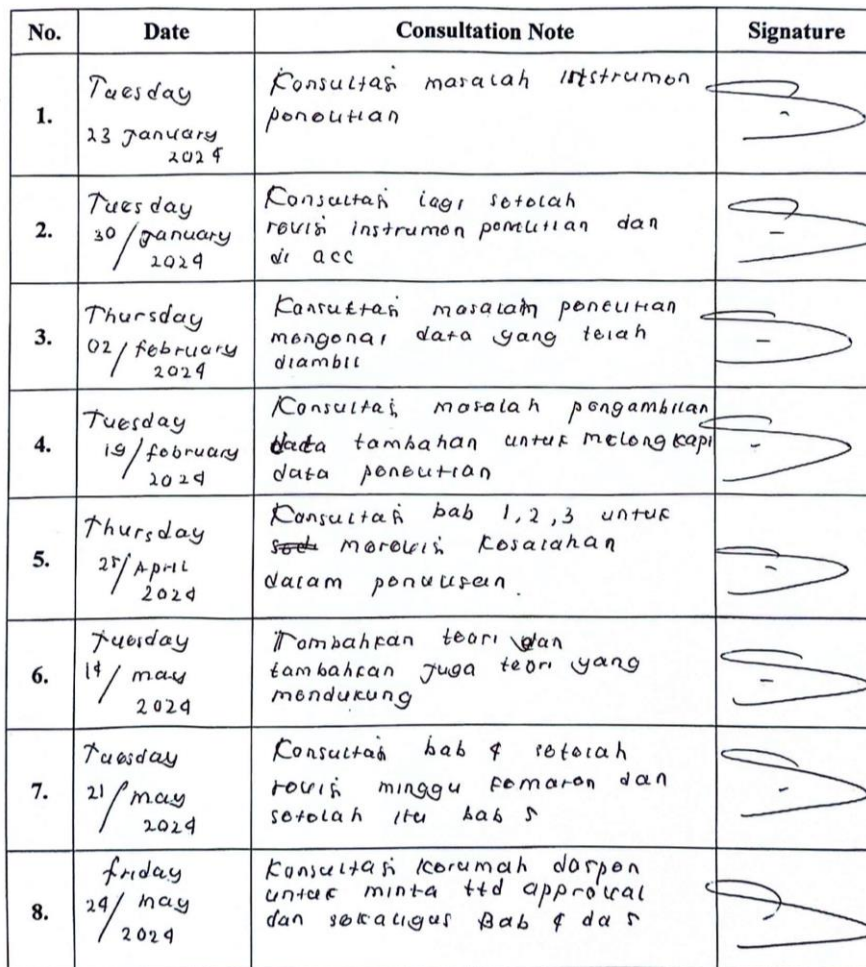 No. Date Consultation Note Signature
1. Tuesday
23 January
2024
Konsultasi masalah intstrumen
penelitian
2. Tuesday
30/January
2024
Konsultasi lagi setelah
revisi instrumen penelitian dan
di acc
3. Thursday
02/february
2024
Konsultasi masalah penelitian
mengenai data yang telah
diambil
4. Tuesday
19/february
2024
Konsultasi masalah pengambilan
data tambahan untuk melengkapi
data penelitian
5. Thursday
25/April
2024
Konsultasi bab 1,2,3 untuk
merevisi kesalahan
dalam penulisan.
6. Tuesday
14/may
2024
Tambahkan teori dan
tambahkan juga teori yang
mendukung
7. Tuesday
21/may
2024
Konsultasi bab 4 setelah
revisi minggu kemaren dan
setelah itu bab 5
8. friday
24/may
2024
Konsultasi kerumah dospen
untuk minta ttd approval
dan sekaligus Bab 4 da 5